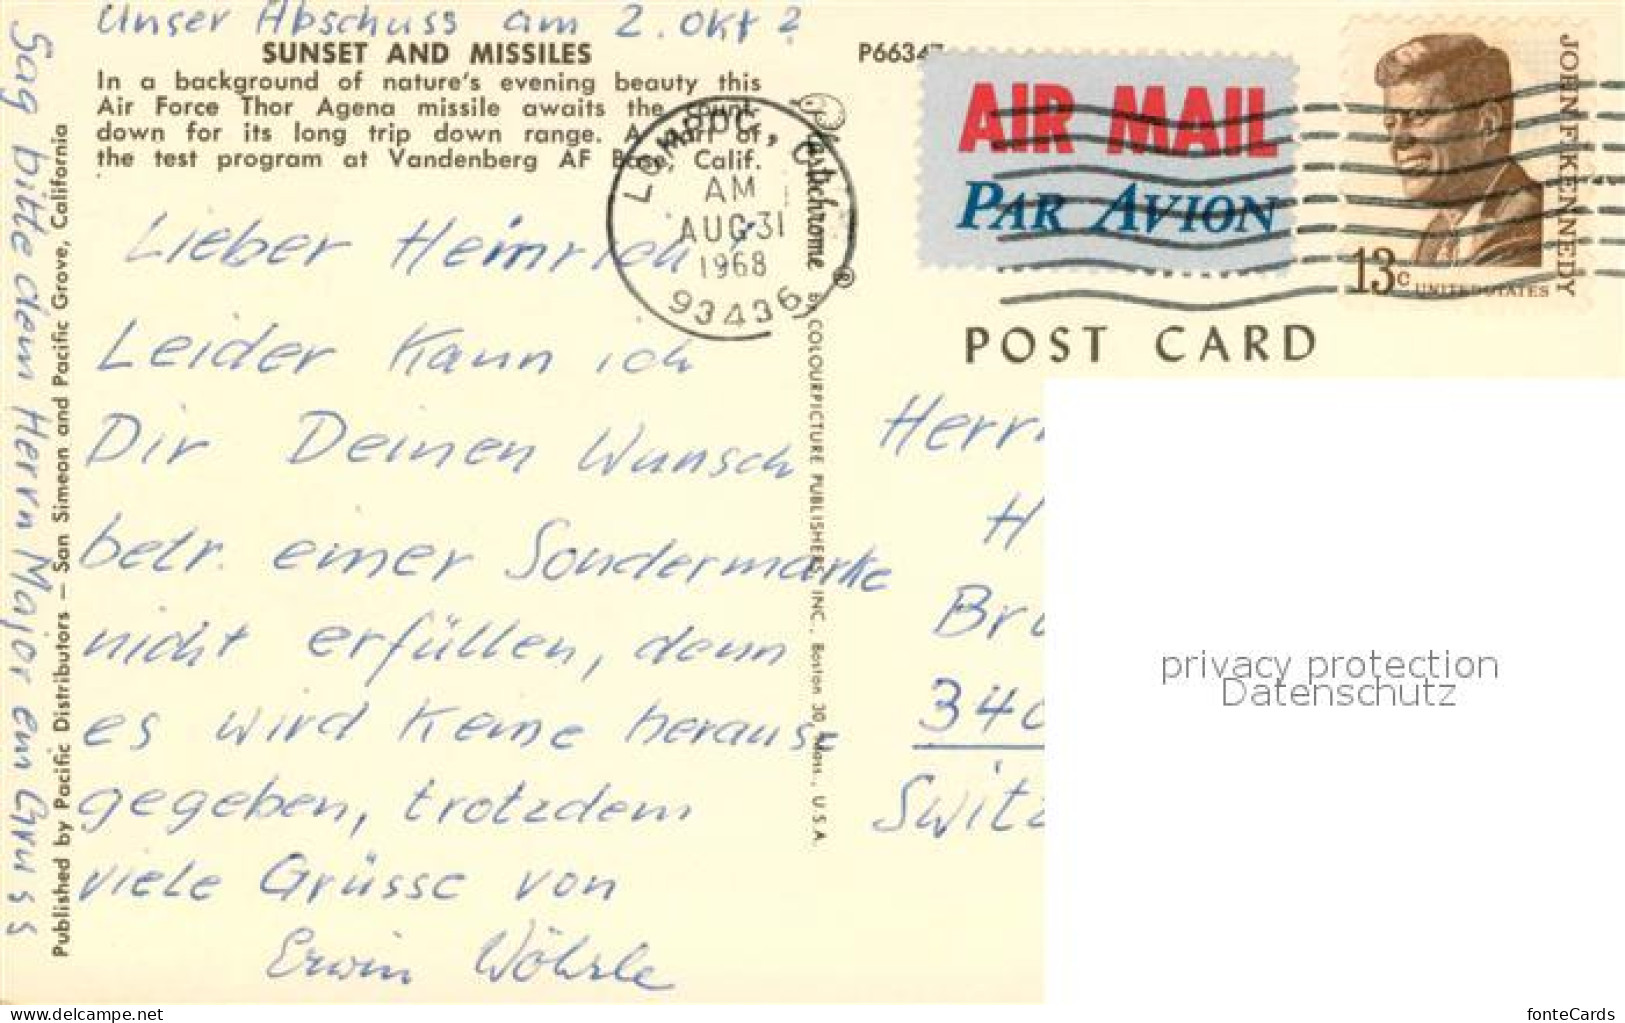 Unser Abschuss am 2. Okt ?
SUNSET AND MISSILES
In a background of nature's evening beauty this
Air Force Thor Agena missile awaits the count-
down for its long trip down range. A part of
the test program at Vandenberg AF Base, Calif.
Lieber Heinrich
Leider kann ich
Dir Deinen Wunsch
betr. einer Sondermarke
nicht erfüllen, denn
es wird keine heraus-
gegeben, trotzdem
viele Grüsse von
Erwin Wöhrle
Sag bitte dem Herrn Major ein Gruss
Published by Pacific Distributors — San Simeon and Pacific Grove, California
LOMPOC, CA
AM
AUG 31
1968
93436
Plastichrome ®
by COLOURPICTURE PUBLISHERS, INC., Boston 30, Mass., U.S.A.
P66347
AIR MAIL
PAR AVION
JOHN F. KENNEDY
13c UNITED STATES
POST CARD
Herrn
H
Bru
340
Switz
privacy protection
Datenschutz
www.delcampe.net
fonteCards